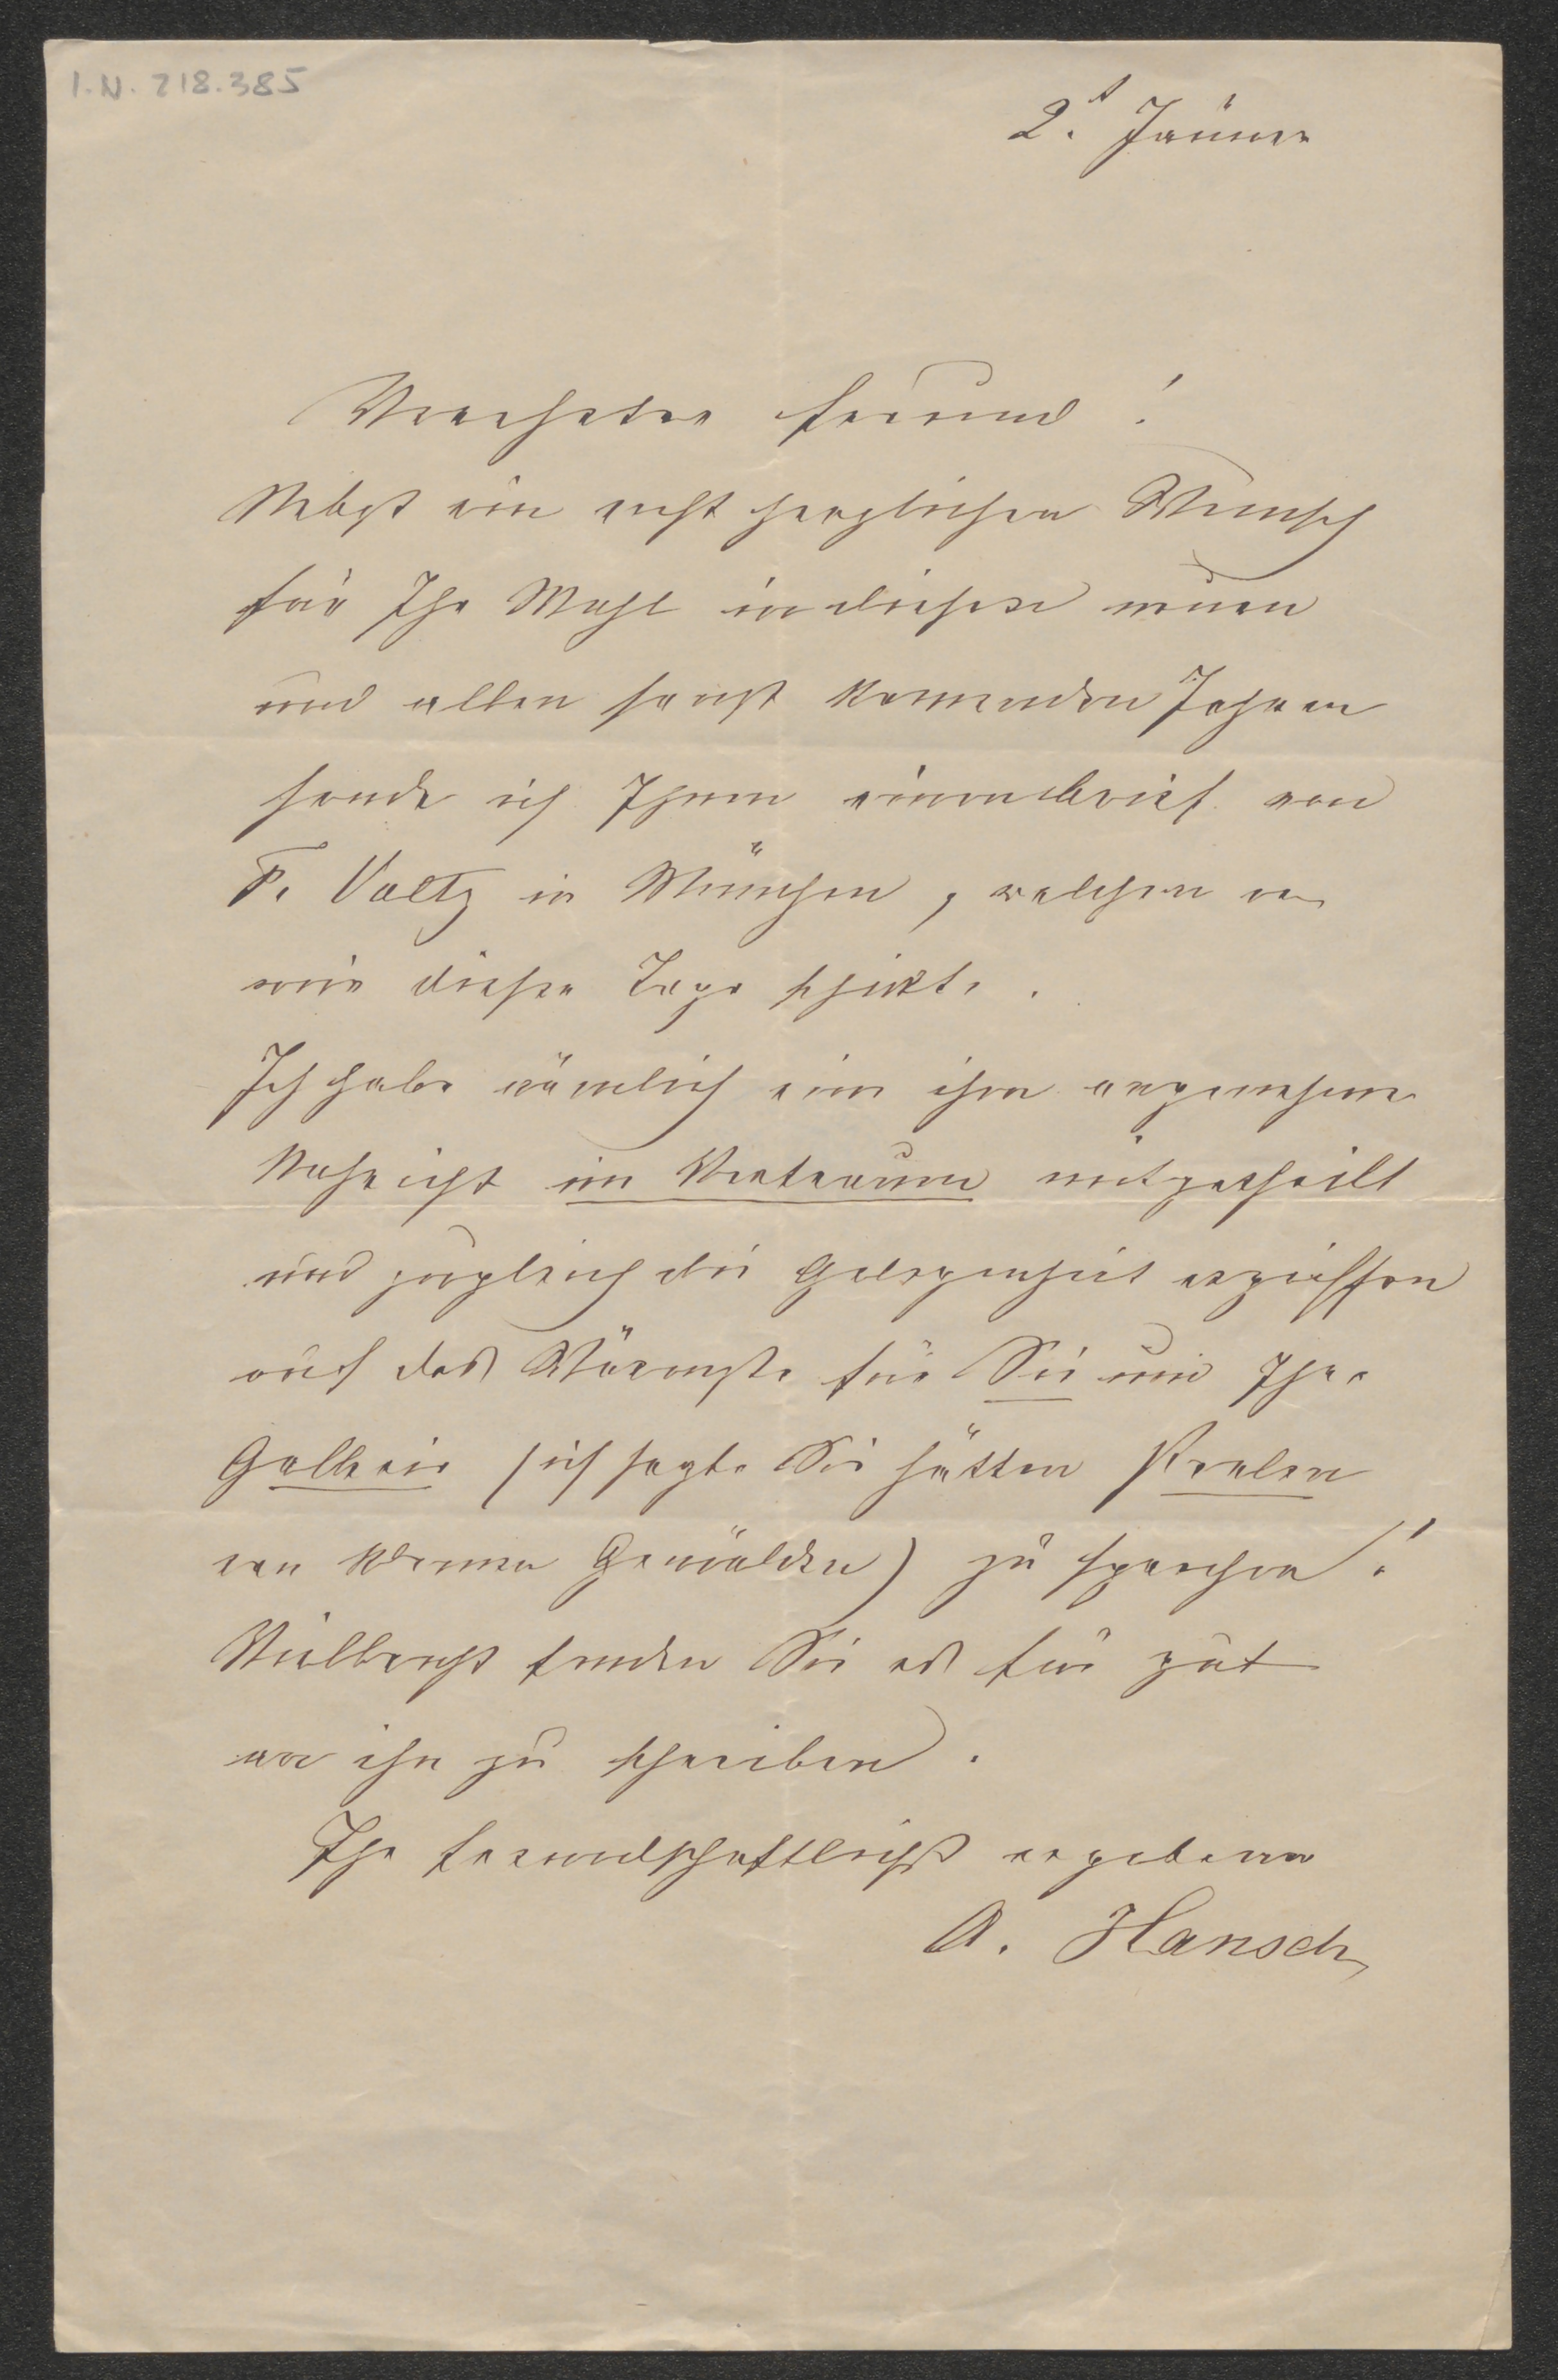 I.N. 218.385
2t. Jänner
Verehrter Freund!
Nebst ein recht herzlichen Wunsch
für Ihr Wohl in diesem neuen
und allen sonst kommenden Jahren
sende ich Ihnen einen Brief von
F. Voltz in München, welchen er
mir dieser Tage schikte.
Ich habe nämlich eine ihm angenehme
Nachricht im Vertrauen mitgetheilt
und zugleich die Gelegenheit ergriffen
auf das Wärmste für Sie und Ihre
Gallerie (ich sagte Sie hätten Perlen
von kleinen Gemälden) zu sprechen!
Vielleicht finden Sie es für gut
an ihn zu schreiben.
Ihr freundschaftlichst ergebener
A. Hansch